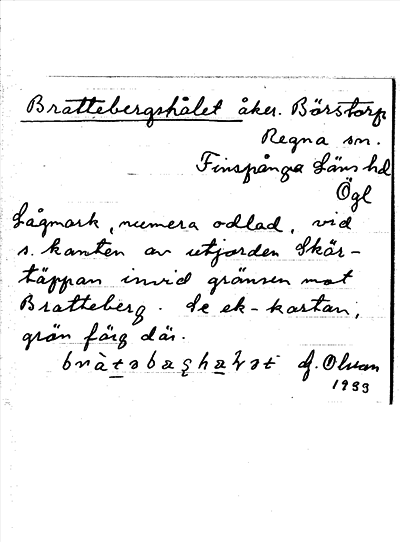 Brattebergshålet åker. Börstorp
Regna sn.
Finspånga Läns hd
Ögl
Lågmark, numera odlad, vid
s. kanten av utjorden Skär-
täppan invid gränsen mot
Bratteberg. Se ek-kartan,
grön färg där.
Olson
1933